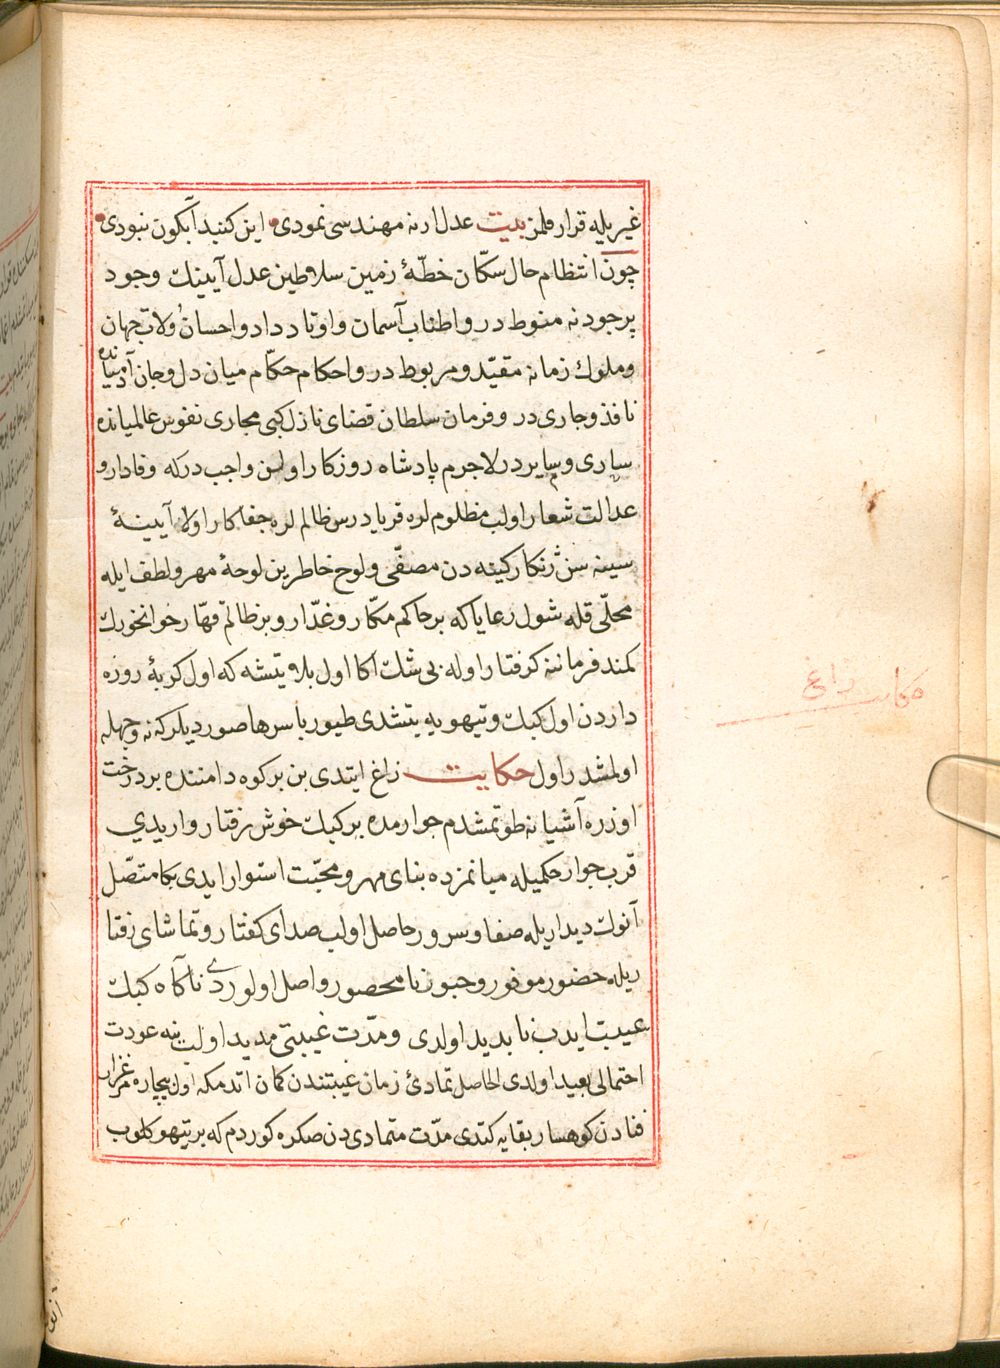 غیریله قرار قلمز بیت عدل ارنه مهندسی نمودی این کنبد آبکون نبودی
چون انتظام حال سکّان خطّهٔ زمین سلاطین عدل آیینك وجود
پرجودنه منوط در واطناب آسمان واوتاد داد واحسان ولات جهان
وملوك زمانه مقیّد ومربوط در واحکام حکّام میان دل وجان آدمیانده
نافذ وجاری در وفرمان سلطان قضای نازل کبی مجاری نفوس عالمیانده
ساری وسایر در لاجرم پادشاه روزکار اولن واجب درکه وفادار و
عدالت شعار اولب مظلوملره فریادرس ظالملره جفاکار اولا آیینهٔ
سینه سن ژنکار کینه دن مصفّی ولوح خاطرین لوحهٔ مهر ولطف ایله
محلّی قله شول رعایا که بر حاکم مکّار وغدّار وبر ظالم قهّار خوانخورك
کمند فرماننه کرفتار اوله بی شك اکا اول بلا یتشه که اول کربهٔ روزه
داردن اول کبك وتیهویه یتشدی طیور باسرها صوردیلرکه نه وجهله
اولمشدر اول حکایت زاغ ایتدی بن بر کوه دامننده بر درخت
اوزره آشیانه طوتمشدم جوارمده بر کبك خوش رفتار واریدی
قرب جوار حکمیله میانمزده بنای مهر ومحبّت استوار ایدی بکا متصّل
آنوك دیداریله صفا وسرور حاصل اولب صدای کفتار وتماشای رفتا
ریله حضور موفور وحبور نامحصور واصل اولوردی ناکاه کبك
غیبت ایدب نابدید اولدی ومدّت غیبتی مدید اولب ینه عودت
احتمالی بعید اولدی الحاصل تمادئ زمان غیبتندن کمان اتدمکه اول بیچاره مرغزار
فنادن کوهسار بقایه کتدی مدّت متمادی دن صکره کوردم که بر تیهو کلوب
حکایت زاغ